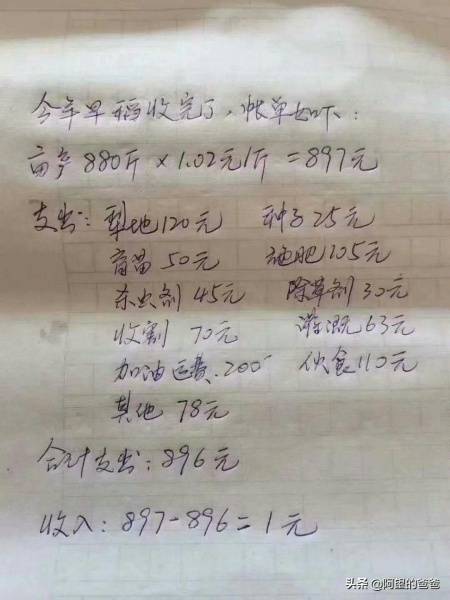 今年早稻收完了，帐单如下：
亩产880斤×1.02元/斤=897元
支出：犁地120元 种子25元
育苗50元 施肥105元
杀虫剂45元 除草剂30元
收割70元 灌溉63元
加油运费.200 伙食110元
其他78元
合计支出：896元
收入：897-896=1元
头条@阿里的爸爸